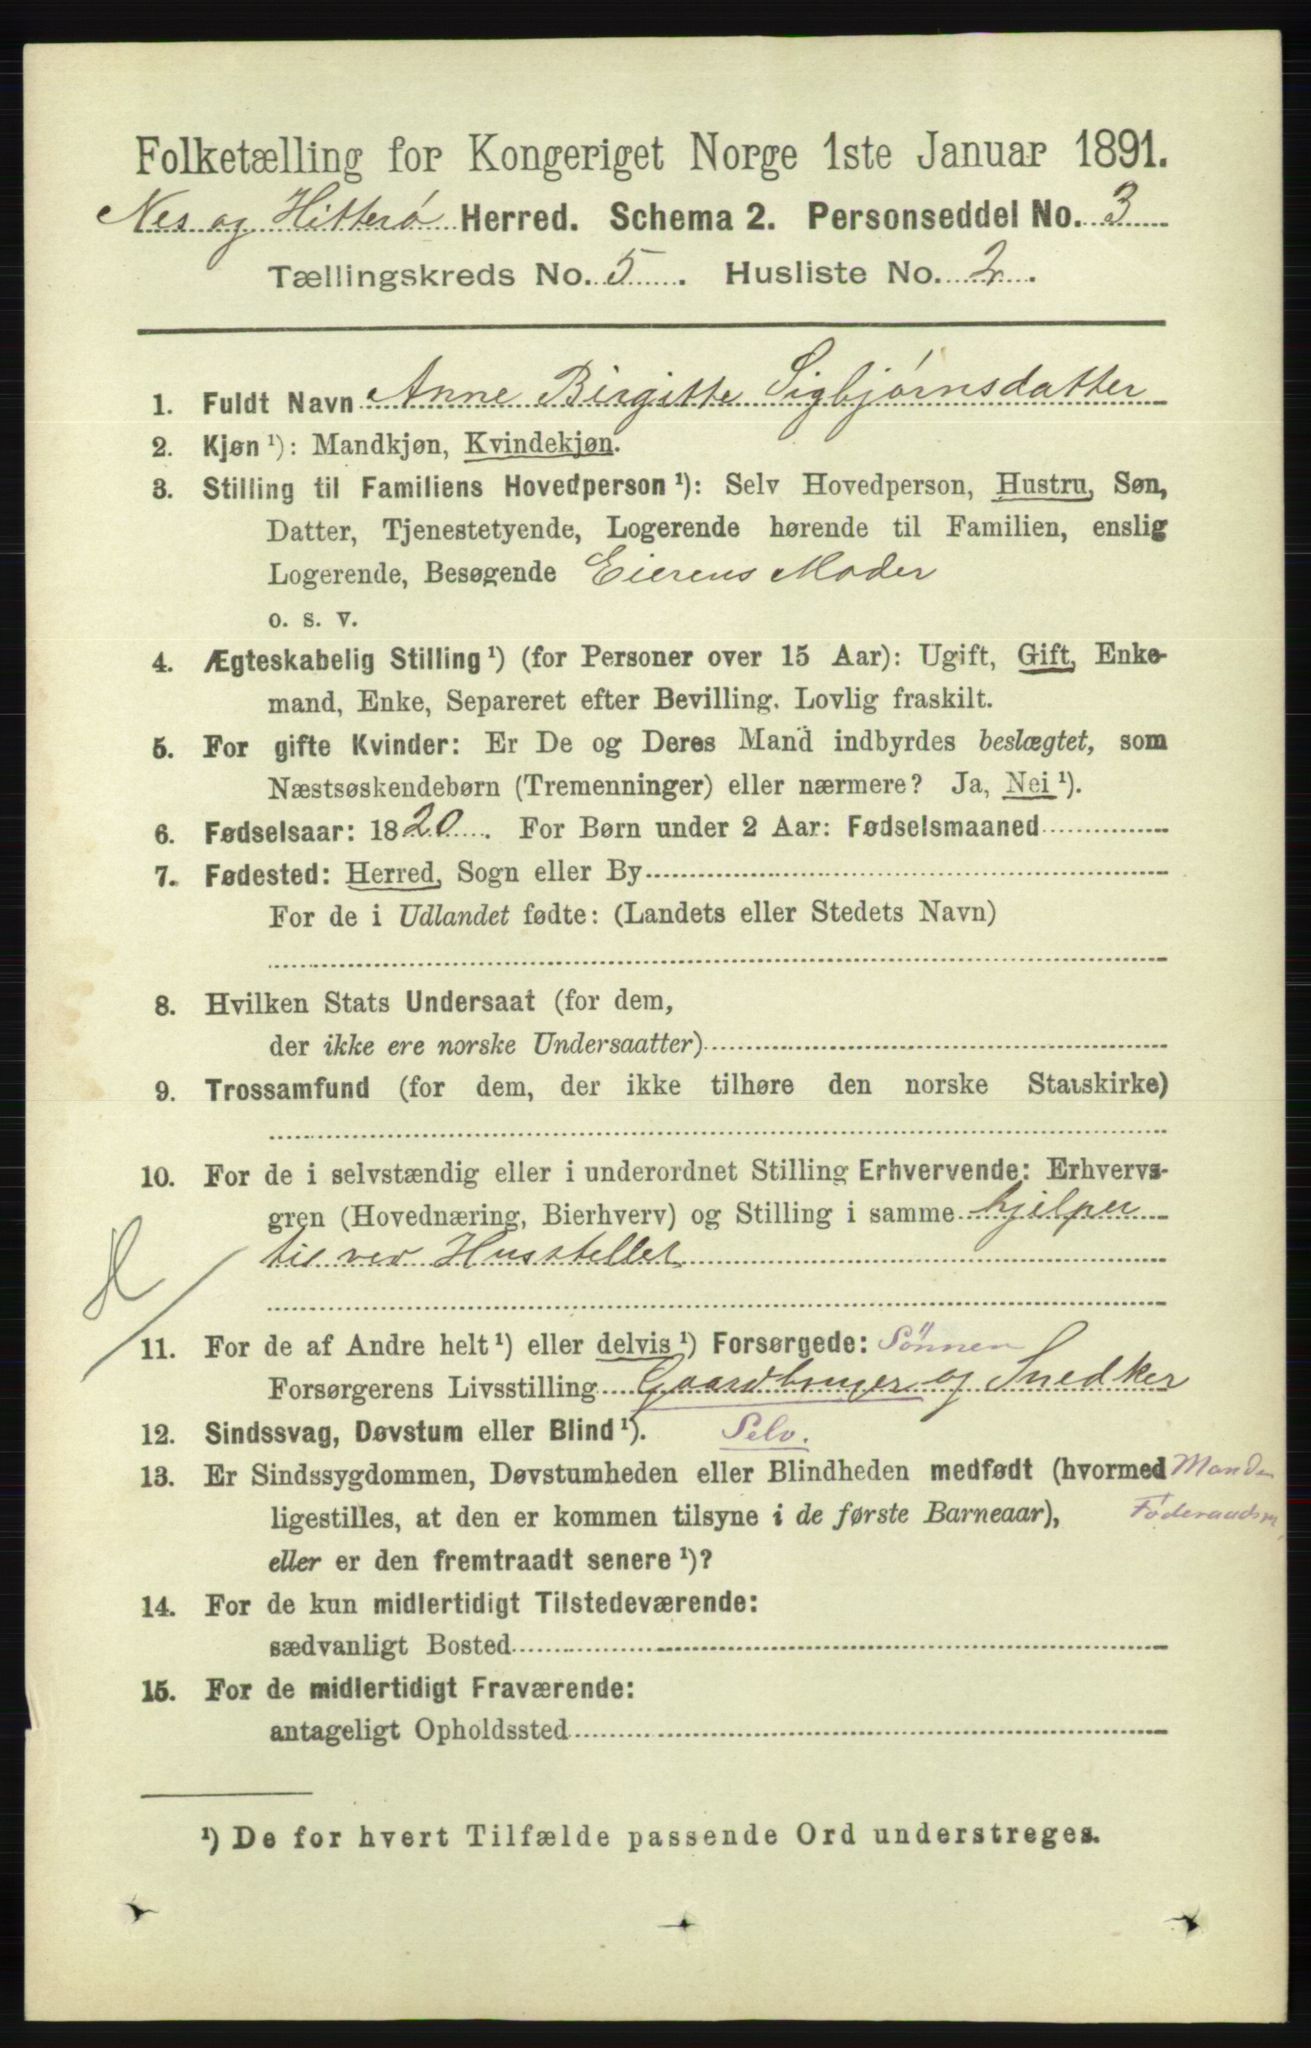 Folketælling for Kongeriget Norge 1ste Januar 1891.
Nes og Hitterø Herred. Schema 2. Personseddel No. 3
Tællingskreds No. 5. Husliste No. 2.
1. Fuldt Navn Anne Birgitte Sigbjørnsdatter
2. Kjøn ¹): Mandkjøn, Kvindekjøn.
3. Stilling til Familiens Hovedperson ¹): Selv Hovedperson, Hustru, Søn,
Datter, Tjenestetyende, Logerende hørende til Familien, enslig
Logerende, Besøgende Eierens Moder
o. s. v.
4. Ægteskabelig Stilling ¹) (for Personer over 15 Aar): Ugift, Gift, Enke-
mand, Enke, Separeret efter Bevilling. Lovlig fraskilt.
5. For gifte Kvinder: Er De og Deres Mand indbyrdes beslægtet, som
Næstsøskendebørn (Tremenninger) eller nærmere? Ja, Nei ¹).
6. Fødselsaar: 1820. For Børn under 2 Aar: Fødselsmaaned
7. Fødested: Herred, Sogn eller By
For de i Udlandet fødte: (Landets eller Stedets Navn)
8. Hvilken Stats Undersaat (for dem,
der ikke ere norske Undersaatter)
9. Trossamfund (for dem, der ikke tilhøre den norske Statskirke)
10. For de i selvstændig eller i underordnet Stilling Erhvervende: Erhvervs-
gren (Hovednæring, Bierhverv) og Stilling i samme hjelper
til ved Husstellet
11. For de af Andre helt ¹) eller delvis ¹) Forsørgede: Sønnen
Forsørgerens Livsstilling Gaardbruger og Snedker
12. Sindssvag, Døvstum eller Blind ¹). Selv.
13. Er Sindssygdommen, Døvstumheden eller Blindheden medfødt (hvormed Manden
ligestilles, at den er kommen tilsyne i de første Barneaar), Føderaadsm.
eller er den fremtraadt senere ¹)?
14. For de kun midlertidigt Tilstedeværende:
sædvanligt Bosted
15. For de midlertidigt Fraværende:
antageligt Opholdssted
¹) De for hvert Tilfælde passende Ord understreges.